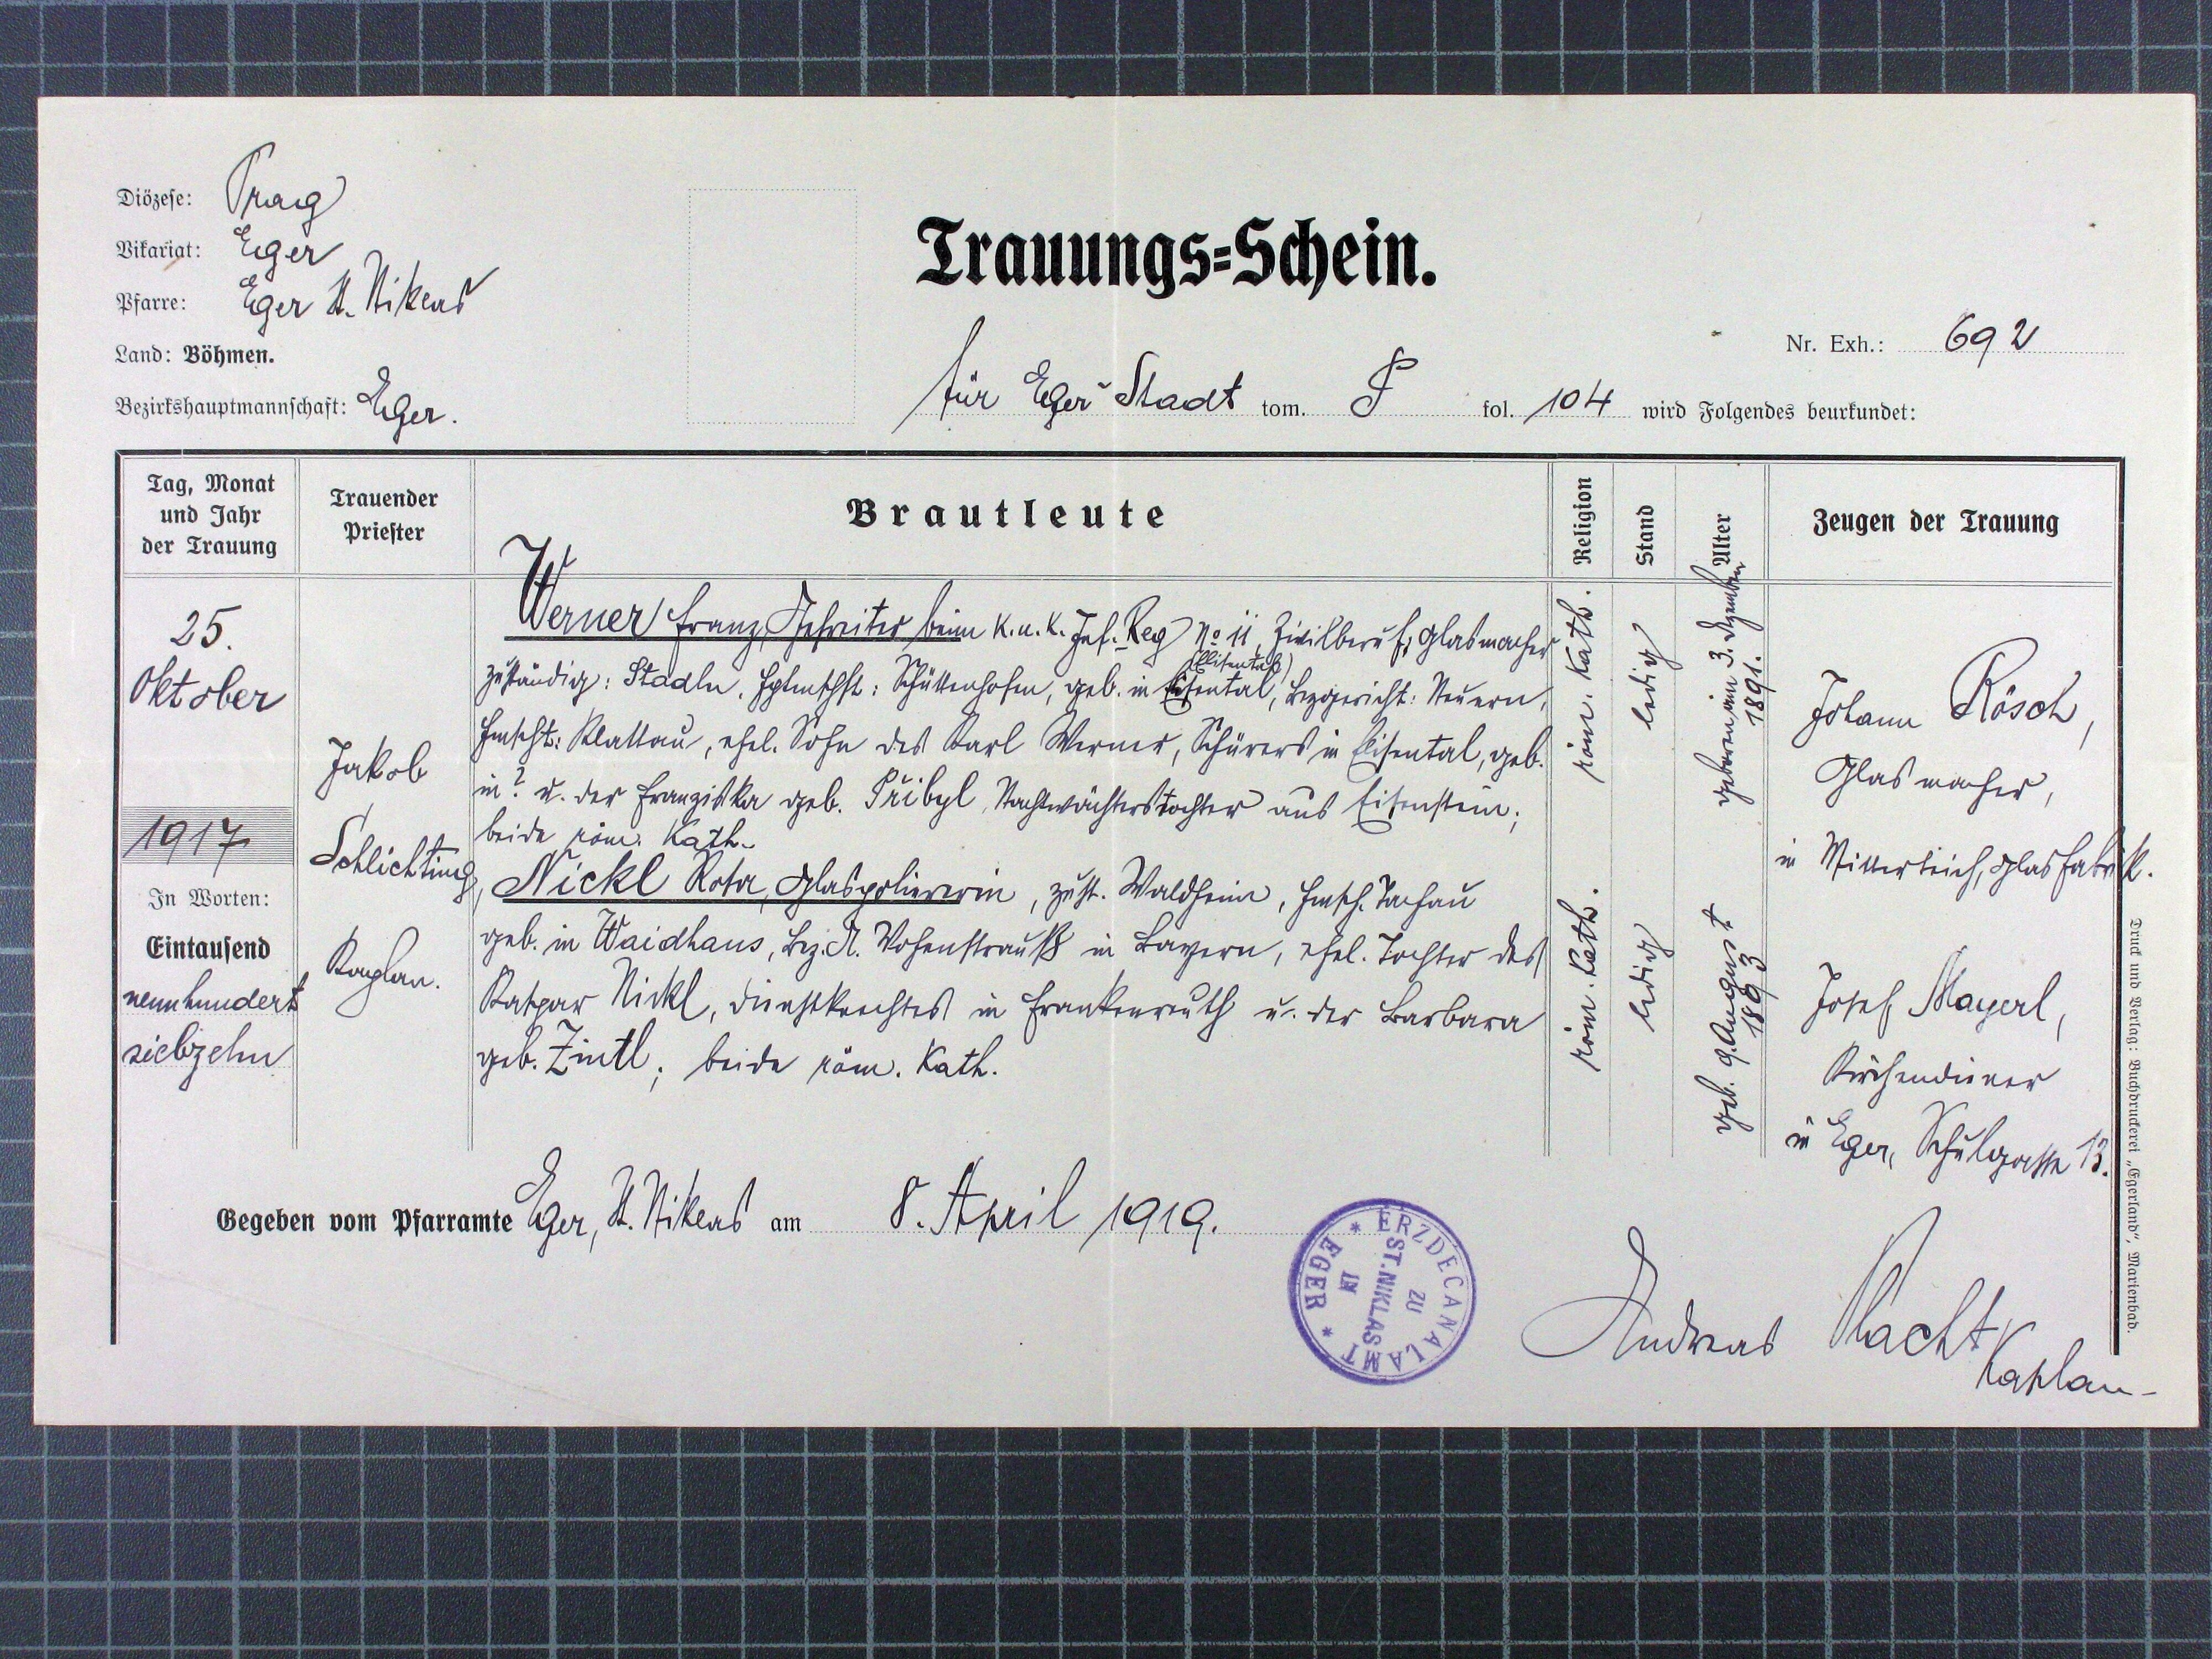 Diözese: Prag
Vikariat: Eger
Pfarre: Eger St. Niklas
Land: Böhmen.
Bezirkshauptmannschaft: Eger.
Trauungs=Schein.
Nr. Exh.: 692
für Eger Stadt tom. fol. 104 wird Folgendes beurkundet:
Tag, Monat
und Jahr
der Trauung
Trauender
Priester
Brautleute
Religion
Stand
Alter
Zeugen der Trauung
25.
Oktober
1917
In Worten:
Eintausend
neunhundert
siebzehn
Jakob
Schlichting,
Kaplan.
Werner Franz, Gefreiter beim k. u. k. Inf. Reg No 11, Zivilberuf: Glasmacher
(Elisental)
zuständig: Stadln, Hptmschft: Schüttenhofen, geb. in Eisental, Bezgericht: Neuern,
Hmscht: Klattau, ehel. Sohn des Karl Werner, Schürers in Elisental, geb.
in? u. der Franziska geb. Přibyl, Nachtwächterstochter aus Eisenstein;
beide röm. Kath.
Nickl Rosa, Glaspoliererin, zust. Waldheim, Hmsch. Tachau
geb. in Waidhaus, Bez. A. Vohenstrauß in Bayern, ehel. Tochter des
Kaspar Nickl, Dienstknechtes in Frankenreuth u. der Barbara
geb. Zintl; beide röm. Kath.
röm. Kath.
ledig
geboren am 3. Dezember
1891.
röm. Kath.
ledig
geb. 9. August
1893
Johann Rösch,
Glasmacher,
in Mitterteich, Glasfabrik.
Josef Mayerl,
Kirchendiener
in Eger, Schulgasse 13.
Gegeben vom Pfarramte Eger, St. Niklas am 8. April 1919.
ERZDECANALAMT
ZU
ST. NIKLAS
IN
* EGER *
Andreas Kaplan
Druck und Verlag: Buchdruckerei „Egerland", Marienbad.